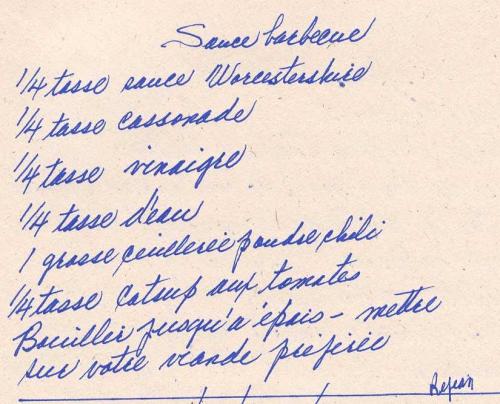 Sauce barbecue
1/4 tasse sauce Worcestershire
1/4 tasse cassonade
1/4 tasse vinaigre
1/4 tasse d'eau
1 grosse cuillerée poudre chili
1/4 tasse catsup aux tomates
Bouillir jusqu'à épais - mettre
sur votre viande préférée